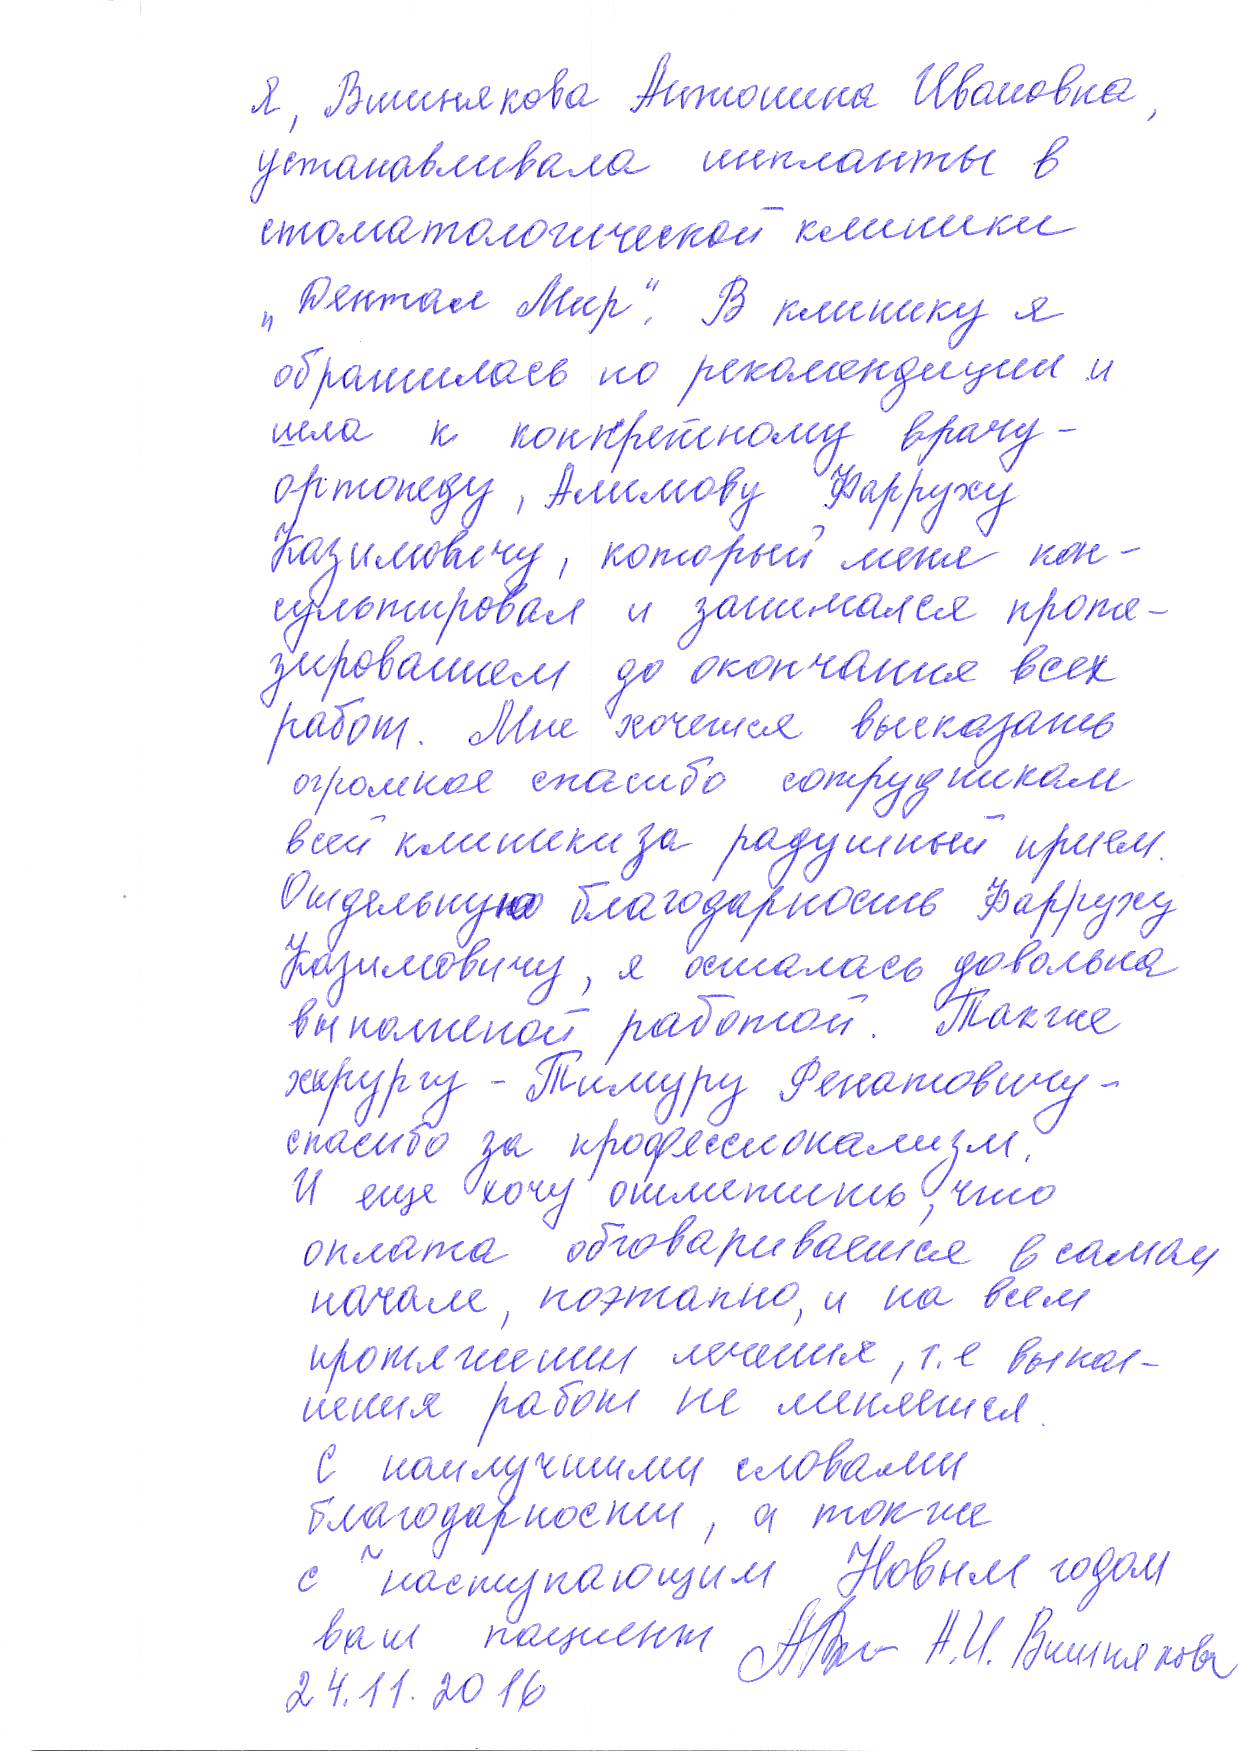 Я, Вишнякова Антонина Ивановна,
устанавливала импланты в
стоматологической клиники
„Дентал Мир“. В клинику я
обратилась по рекомендации и
шла к конкретному врачу-
ортопеду, Алимову Фарруху
Казимовичу, который меня кон-
сультировал и занимался проте-
зированием до окончания всех
работ. Мне хочется высказать
огромное спасибо сотрудникам
всей клиники за радушный прием.
Отдельную благодарность Фарруху
Казимовичу, я осталась довольна
выполненой работой. Также
хирургу - Тимуру Ренатовичу -
спасибо за профессионализм.
И еще хочу отметить, что
оплата обговаривается в самом
начале, поэтапно, и на всем
протяжении лечения, т.е выпол-
нения работ не меняется.
С наилучшими словами
благодарности, а также
с наступающим Новым годом
ваш пациент А.И. Вишнякова
24.11.2016